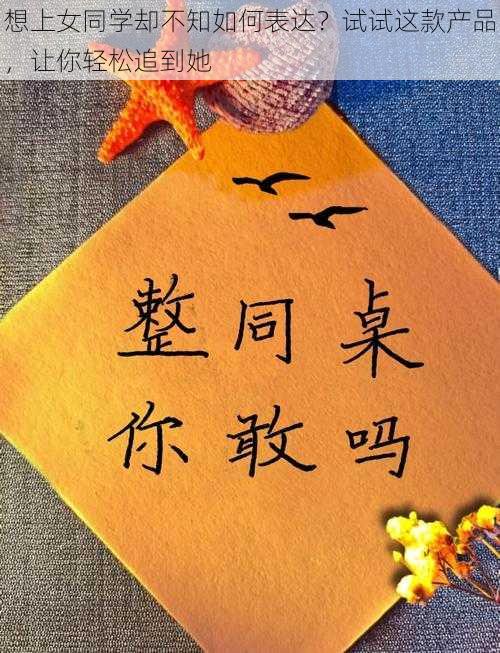 想上女同学却不知如何表达？试试这款产品
，让你轻松追到她
整同桌
你敢吗